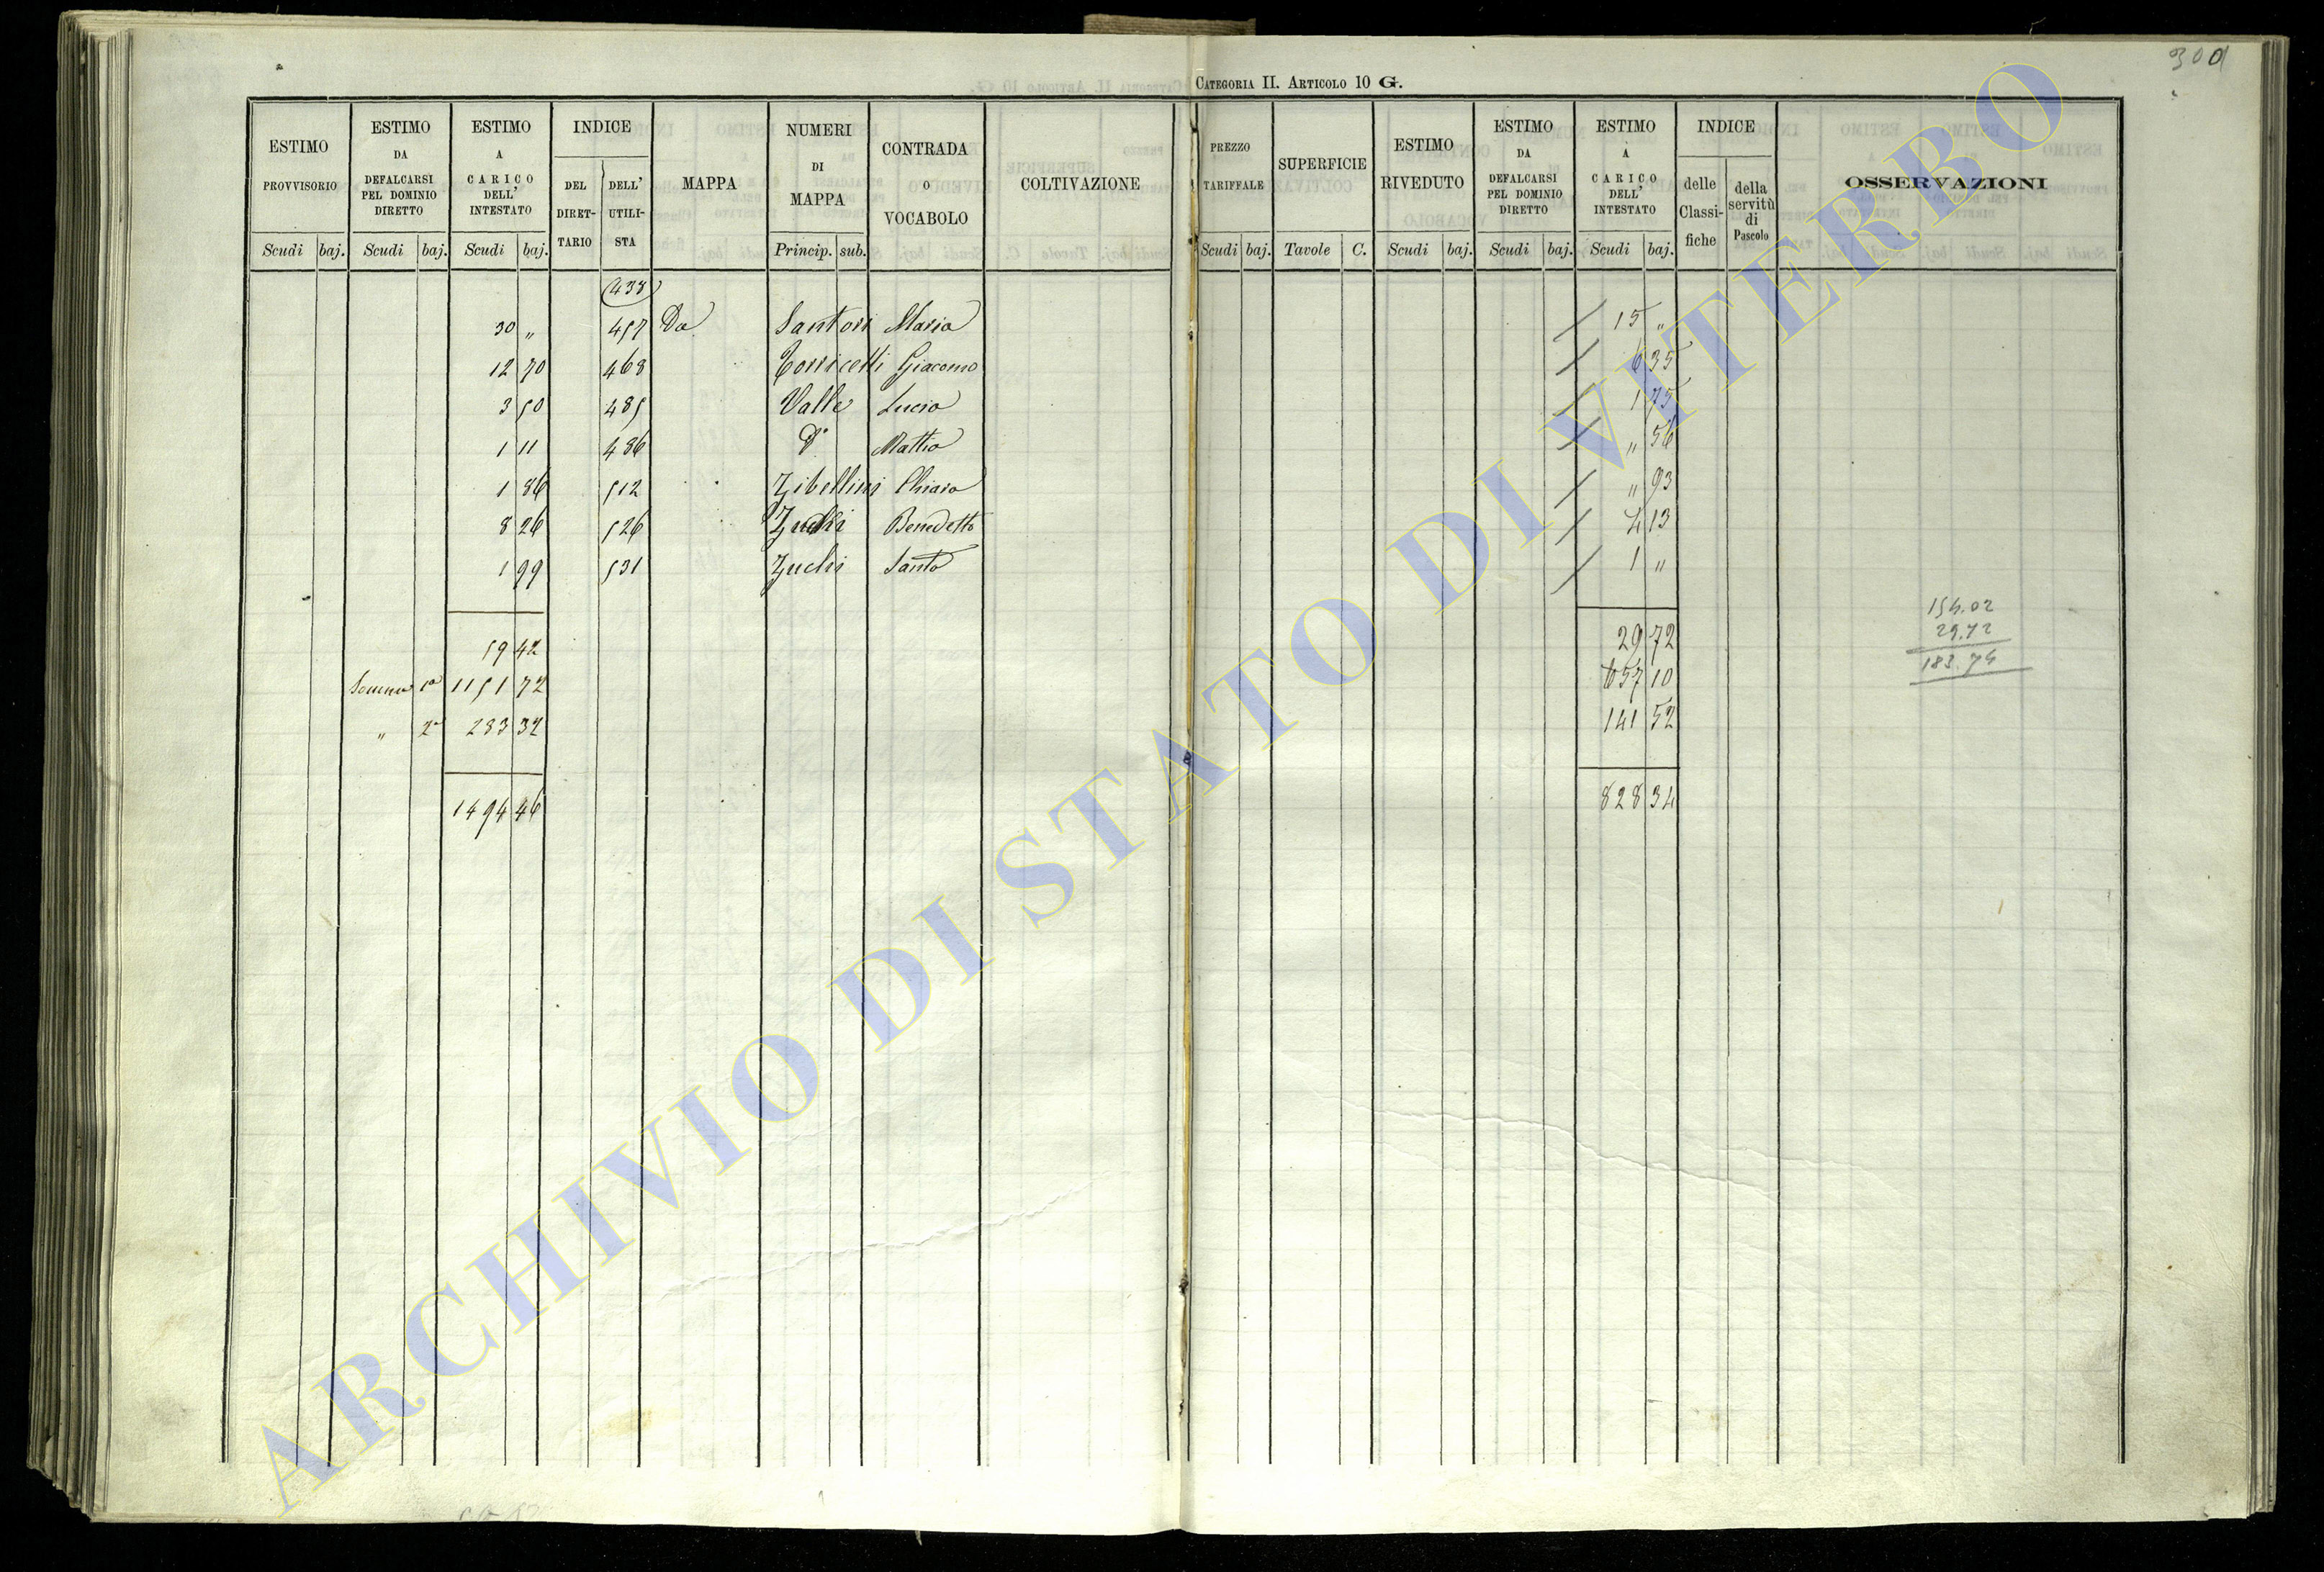 300
CATEGORIA II. ARTICOLO 10 G.
ESTIMO PROVVISORIO
ESTIMO DA DEFALCARSI PEL DOMINIO DIRETTO
ESTIMO A CARICO DELL' INTESTATO
INDICE
DEL DIRET-TARIO
DELL' UTILI-STA
MAPPA
NUMERI DI MAPPA
CONTRADA O VOCABOLO
COLTIVAZIONE
PREZZO TARIFFALE
SUPERFICIE
ESTIMO RIVEDUTO
ESTIMO DA DEFALCARSI PEL DOMINIO DIRETTO
ESTIMO A CARICO DELL' INTESTATO
INDICE
delle Classi-fiche
della servitù di Pascolo
OSSERVAZIONI
Scudi baj. Scudi baj. Scudi baj. Princip. sub. Scudi baj. Tavole C. Scudi baj. Scudi baj. Scudi baj.
438
30 " 457 Da Santori Maria / 15 "
12 70 468 Torricelli Giacomo / 6 35
3 50 485 Valle Lucia / 1 75
1 11 486 D° Mattia / " 56
1 86 512 Zibellini Chiara / " 93
8 26 526 Zuchi Benedetto / 4 13
1 99 531 Zuchi Santo / 1 "
59 42 29 72
Somma 1a 1151 72 657 10
" 2a 283 32 141 52
1494 46 828 34
154.02
29.72
183.74
ARCHIVIO DI STATO DI VITERBO